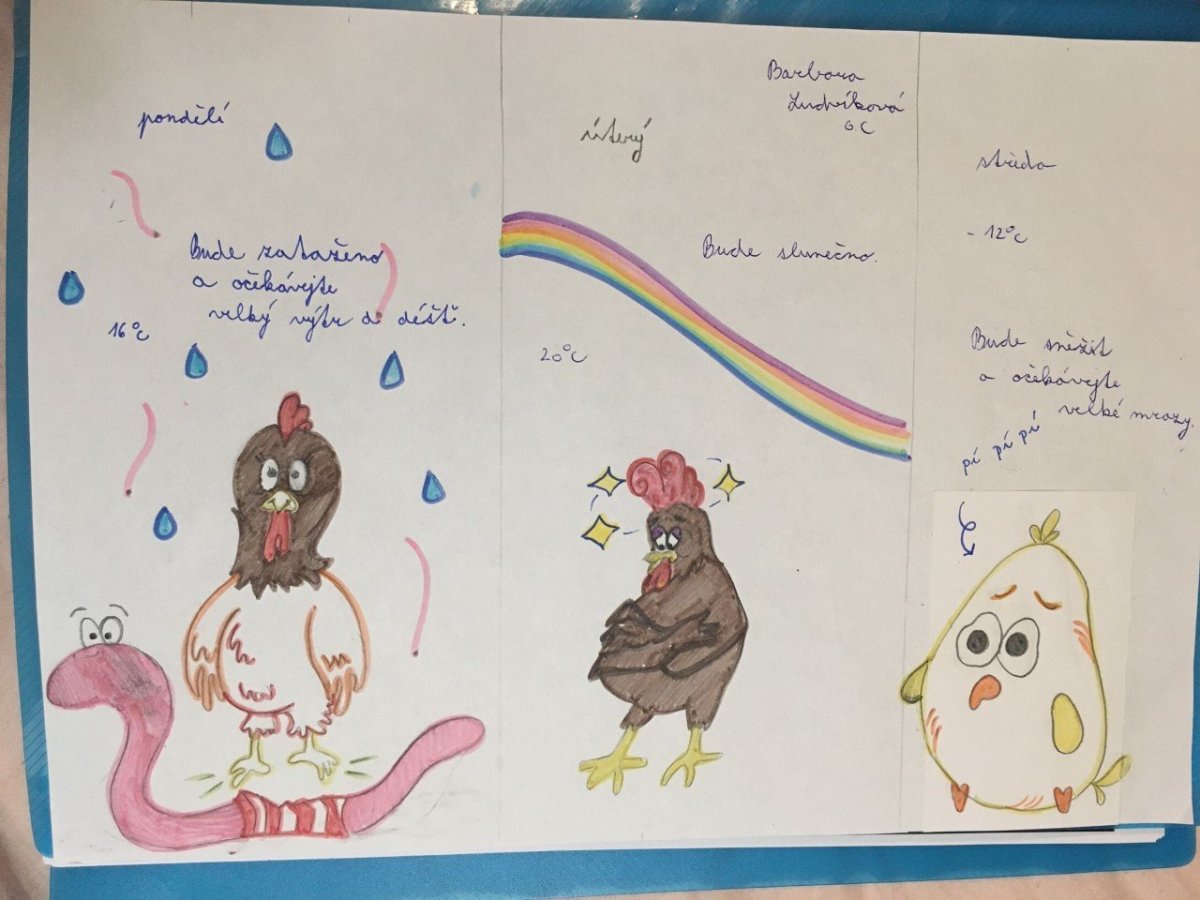 pondělí
Bude zataženo
a očekávejte
velký výtr a déšť.
16°C
Barbora
Ludvíková
6.C
úterý
Bude slunečno.
20°C
středa
- 12°C
Bude sněžit
a očekávejte
velké mrazy.
pí pí pí